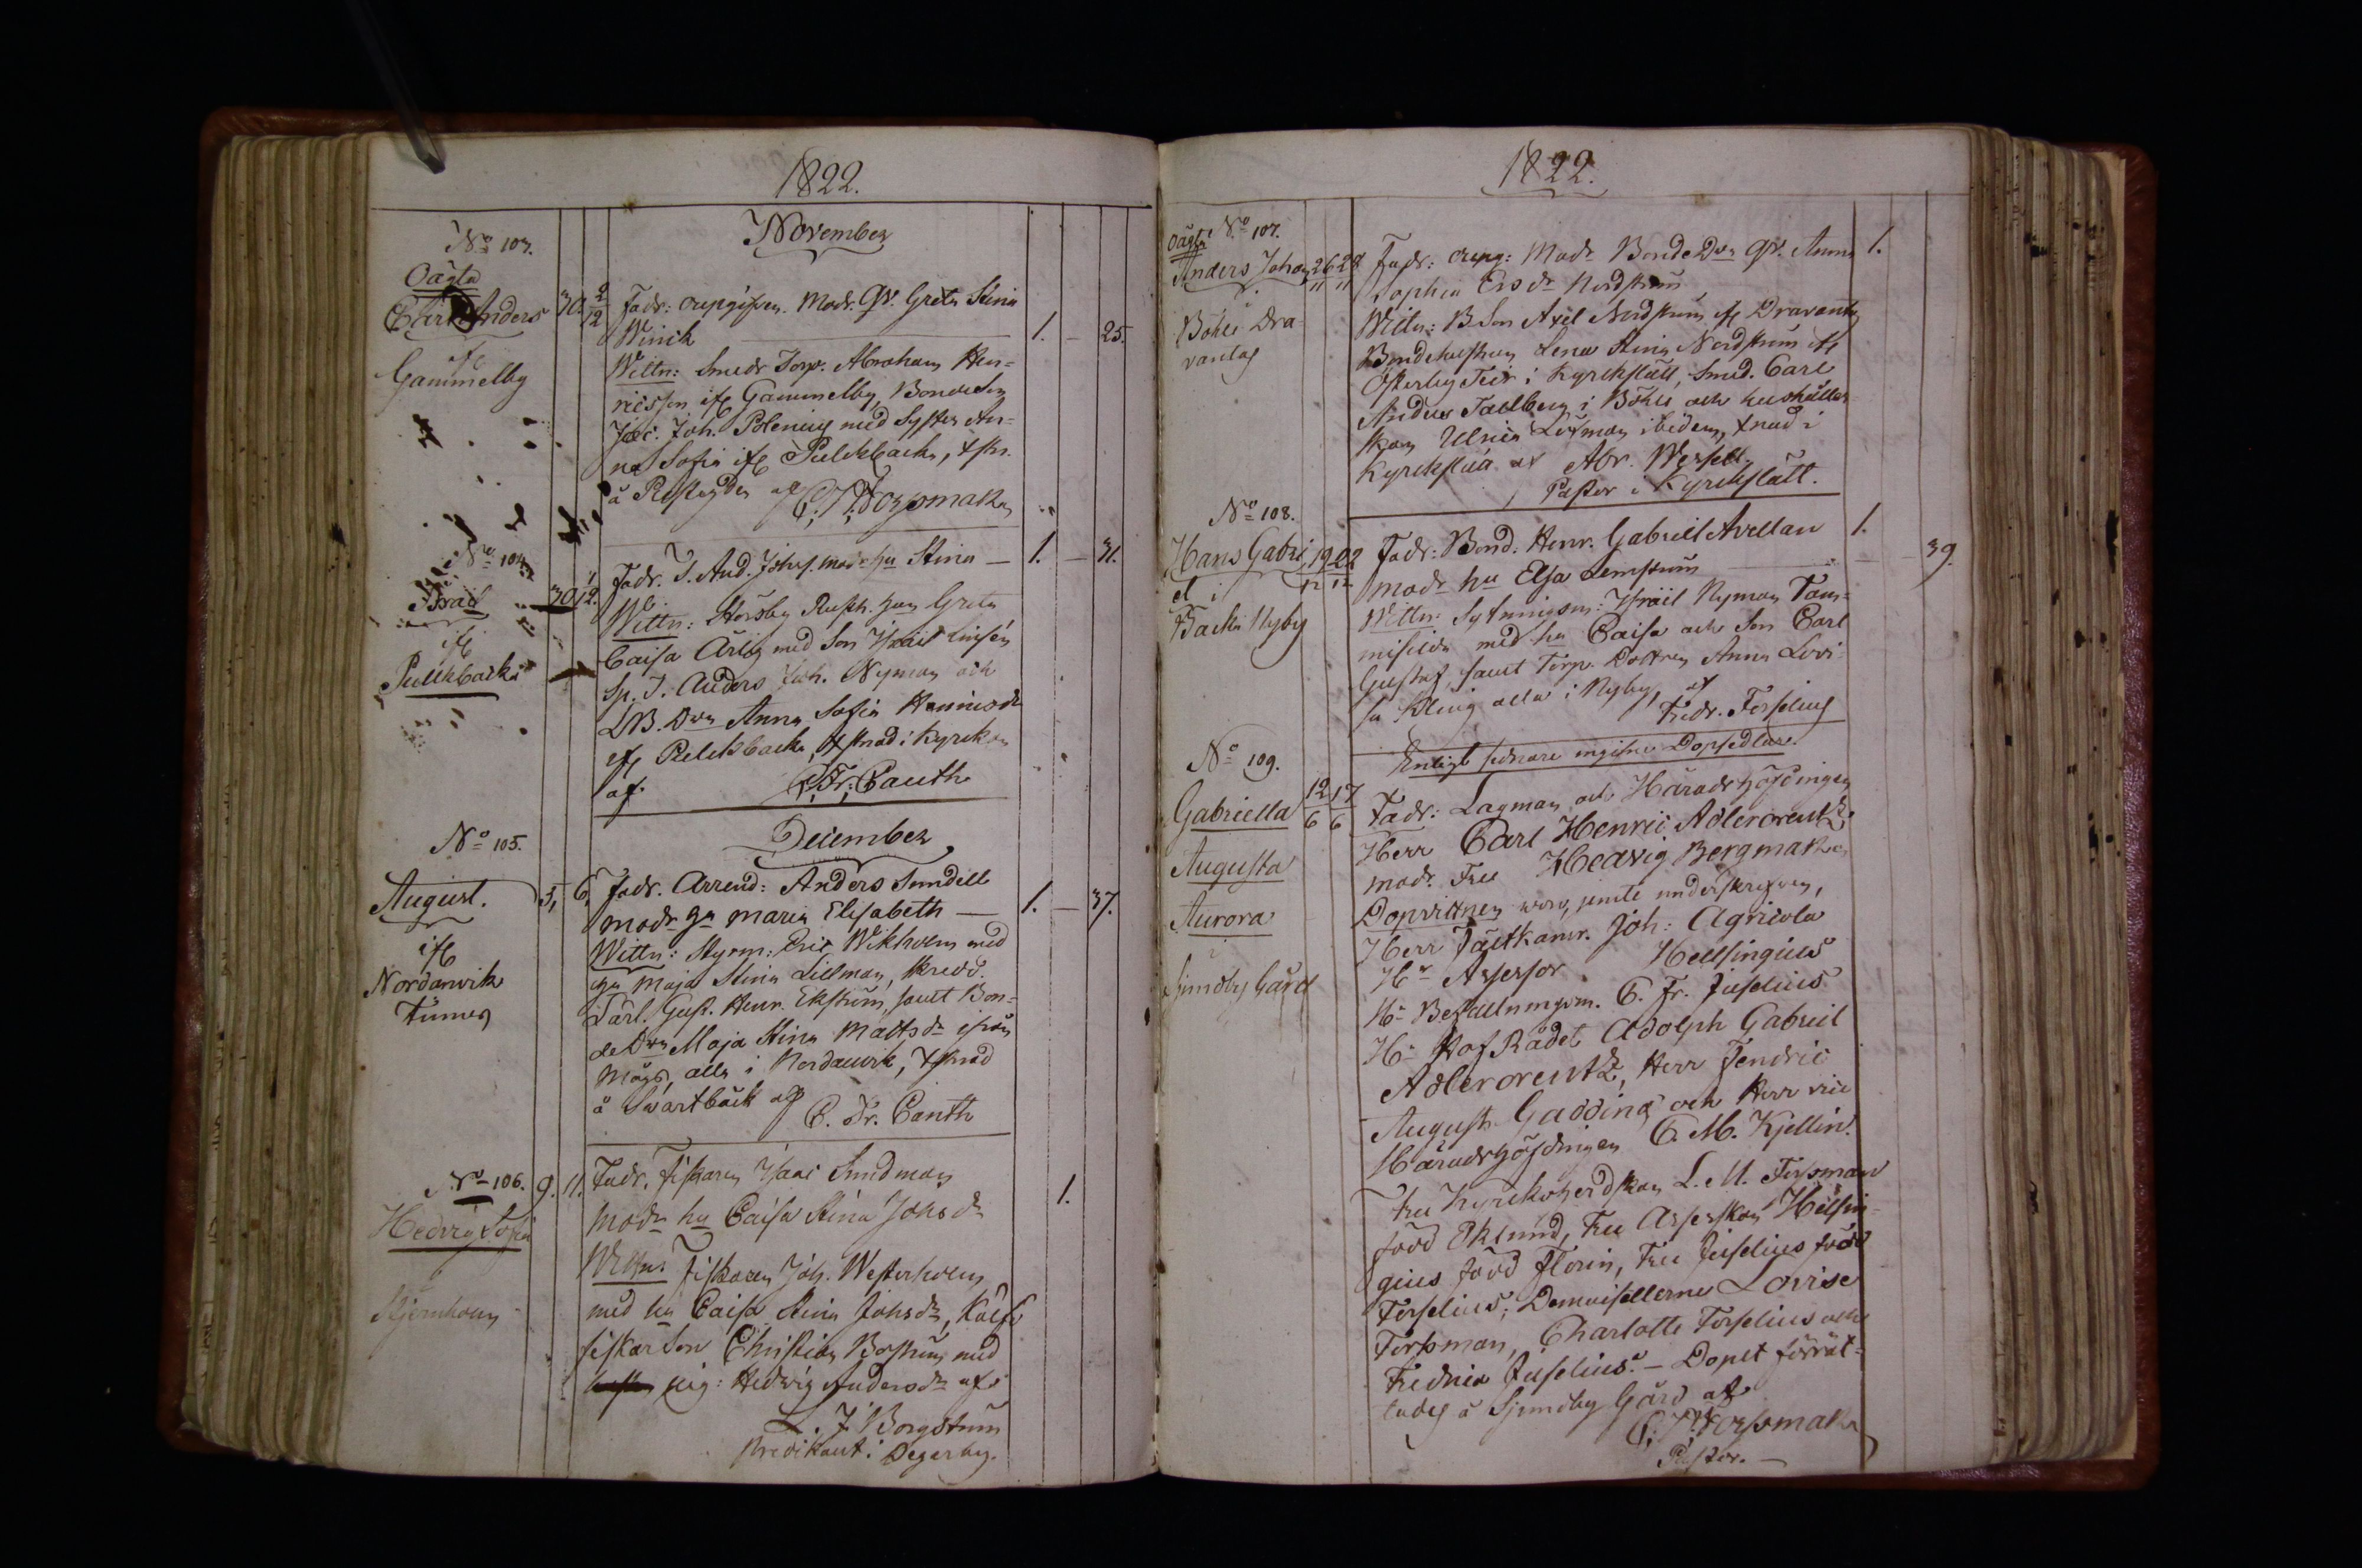 1822.
November
No 103.
Oägta
Carl Anders
ifr
Gammelby
30. 2/12
Fadr: oupgifven. Modr. Qv. Greta Stina
Winck
1. — 25.
Wittn: Smeds Torp. Abraham Hen=
ricsson ifr Gammelby, Bonde Son
Jac. Joh. Polenius med Syster An=
na Sofia ifr Pickbacka,
å Prestgården af C: J: Forssman
No 104
Israel
ifr
Pickbacka
30 1/12.
Fadr. T. And. Johss. modr hu Stina —
1. — 31.
Wittn: Storsby Rusth. hu Greta
Caisa med Son Israel
Sp. T. Anders Joh. Nyman och
B. Dotr Anna Sofia Henricsdr
ifr Pickbacka, i Kyrckan
af. C: Fr: Canth
December
No 105.
August.
ifr
Nordanvik
5, 6,
Fadr. Arrend: Anders Sundell
modr hu Maria Elisabeth —
1. — 37.
Wittn: Styrm: Eric Wikholm med
hu Maja Stina Lillman, Skredd.
Carl Gust. Henr. Ekström, samt Bon=
de Dotr Maja Stina Mattsdr ifrån
alla i Nordanvik,
å Svartbäck af
C. Fr. Canth
No 106.
Hedvig Sofia
Stjernholm
9. 11.
Fadr. Fiskaren Isaac Sundman
modr hu Caisa Stina Johsdr
1.
Wittn: Fiskaren Joh. Westerholm
med hu Caisa Stina Johsdr,
fiskar Son Christian Boström med
pig: Hedvig Andersdr af
L. J. Borgström
Predikant i Degerby.
1822.
Oägta No 107.
Anders Johan
i
Böhle Dra
vantas
26/11 28/11
Fadr: oupg: Modr Bonde Dotr Qv. Anna
Sophia Ersdr Nordström
1.
Wittn: B Son Axel Nordström ifr Dravants
Bondehustrun Lena Stina Nordström ifr
Österby Teir i Kyrckslätt, Smed. Carl
Anders Tallberg i Böhle och hushåller
skan Ulrica Löfman ibidem, i
Kyrckslätt af Abr. Wessell.
Pastor i Kyrckslätt.
No 108.
Hans Gabri
el i
Backa Nyby
19/12 22/12
Fadr: Bond. Henr. Gabriell Avellan
modr hu Elsa Lemström
1. — 39.
Wittn: Sytningsm: Israel Nyman
med hu Caisa och Son Carl
Gustaf, samt Torp. Dottren Anna Lovi-
sa Kling alla i Nyby, af
Fredr. Forselius
Enligt sednare ingifne Dopsedlar.
No 109.
Gabriella
Augusta
Aurora
i
Sjundby Gård
12/6 17/6
Fadr: Lagman och Häradshöfdingen
Herr Carl Henric Adlercreutz.
modr. Fru Hedvig Bergman
Dopvittnen woro, jemte underskrifven,
Herr Fältkamr. Joh: Agricola
Hr Assessor Hellsingius
Hr Befallningsm. C. Fr. Juselius
Hr Hof Rådet Adolph Gabriel
Adlercreutz, Herr Fendric
August Gadding och Herr vice
Häradshöfdingen C. M. Kjellin.
Fru Kyrkoherdskan L. M. Forsman
född Eklund, Fru Assesskan Hellsin-
gius född Florin, Fru Juselius född
Forselius; Demoisellerne Lovise
Forssman, Charlotte Forselius och
Fredrica Juselius. — Dopet förrät=
tades å Sjundby Gård af
C: J: Forssman
Pastor. —